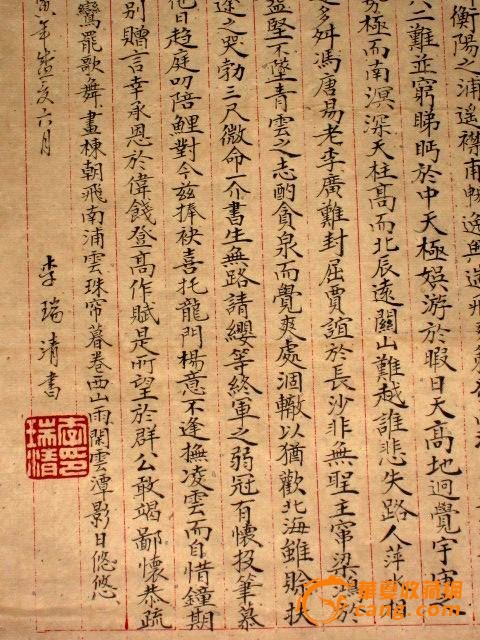 衡陽之浦遙襟甫暢逸興遄飛
二難並窮睇眄於中天極娛游於暇日天高地迥覺宇宙
窮極而南溟深天柱高而北辰遠關山難越誰悲失路人萍水
多舛馮唐易老李廣難封屈賈誼於長沙非無聖主竄梁鴻於
益堅不墜青雲之志酌貪泉而覺爽處涸轍以猶歡北海雖賒扶
途之哭勃三尺微命一介書生無路請纓等終軍之弱冠有懷投筆慕
他日趨庭叨陪鯉對今茲捧袂喜托龍門楊意不逢撫凌雲而自惜鐘期
別贈言幸承恩於偉餞登高作賦是所望於群公敢竭鄙懷恭疏
鸞罷歌舞畫棟朝飛南浦雲珠帘暮卷西山雨閑雲潭影日悠悠
寅年孟夏六月
李瑞清書
李瑞清印
華夏收藏網
cang.com